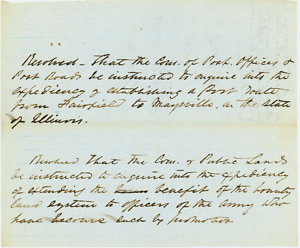 Resolved - That the Com. of Post Offices &
Post Roads be instructed to enquire into the
expediency of establishing a post route
from Fairfield to Maysville, in the state
of Illinois.
Resolved that the Com. of Public Lands
be instructed to enquire into the expediency
of extending the benefit of the bounty
land system to officers of the army who
have become such by promotion